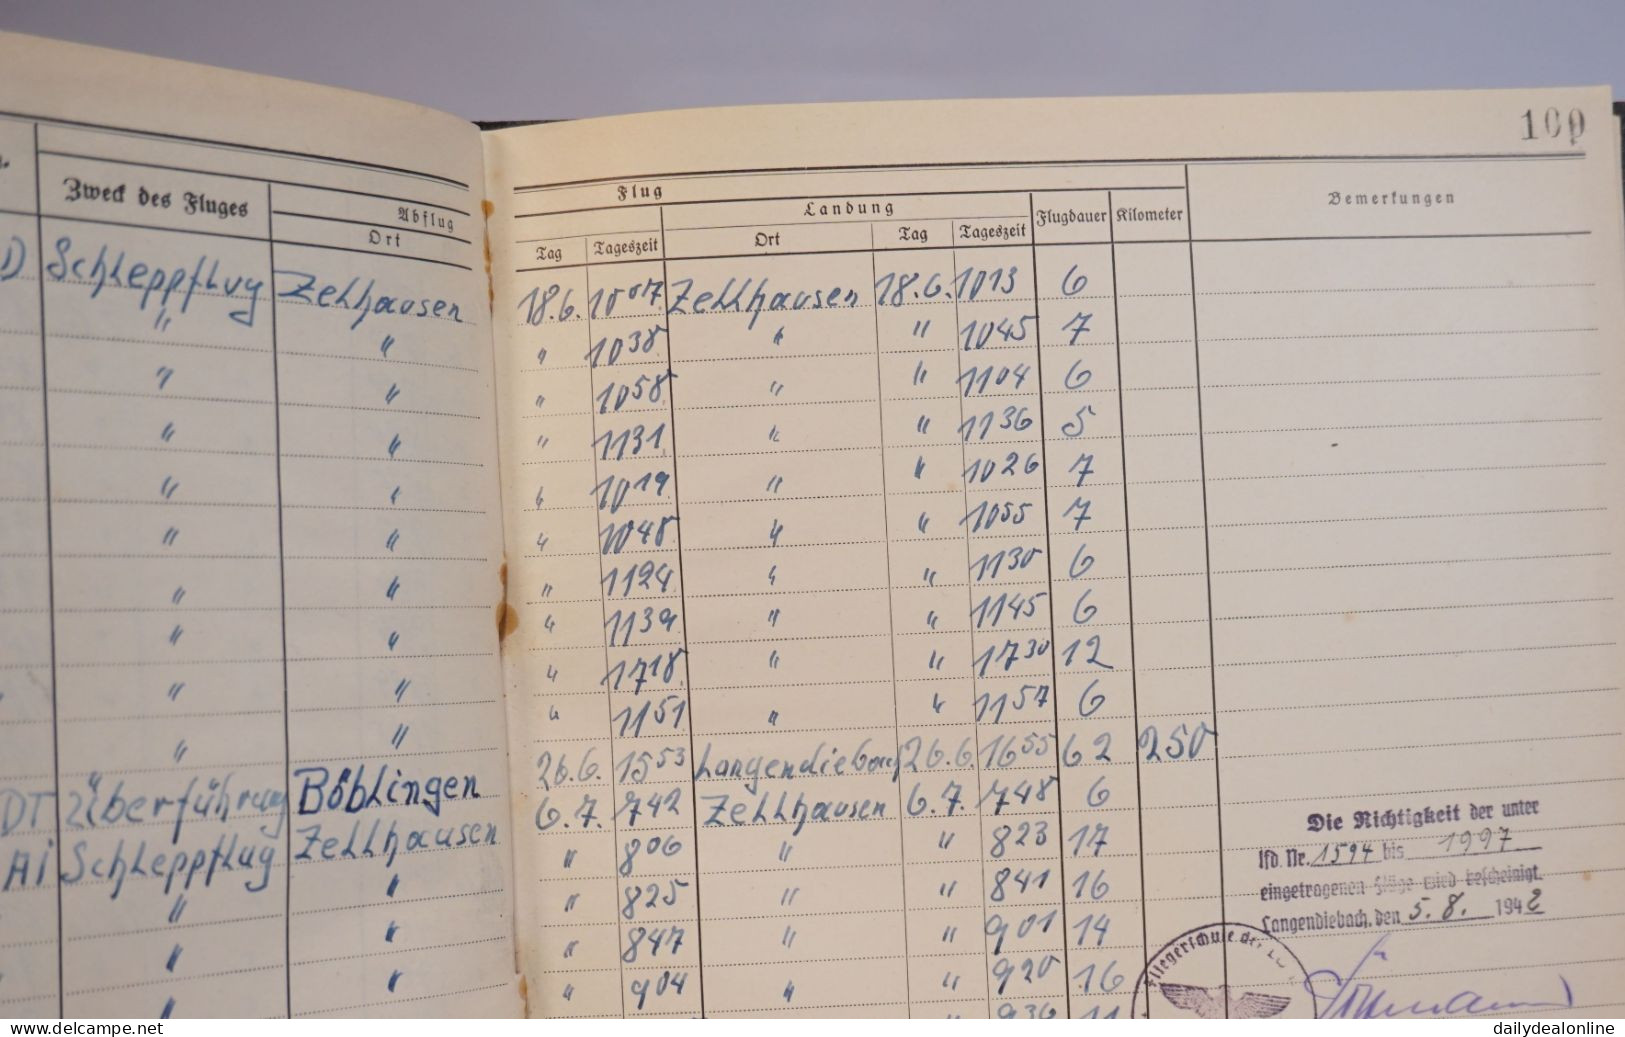 100
Zweck des Fluges Abflug Ort
Flug
Tag Tageszeit Landung Ort Tag Tageszeit Flugdauer Kilometer Bemerkungen
D Schleppflug Zellhausen 18.6. 10 07 Zellhausen 18.6. 10 13 6
" " " 10 38 " " 10 45 7
" " " 10 58 " " 11 04 6
" " " 11 31 " " 11 36 5
" " " 10 19 " " 10 26 7
" " " 10 48 " " 10 55 7
" " " 11 24 " " 11 30 6
" " " 11 39 " " 11 45 6
" " " 17 18 " " 17 30 12
" " " 11 51 " " 11 57 6
DT Überführung Böblingen 26.6. 15 53 Langendiebach 26.6. 16 55 62 250
Ai Schleppflug Zellhausen 6.7. 7 42 Zellhausen 6.7. 7 48 6
" " " 8 06 " " 8 23 17
" " " 8 25 " " 8 41 16
" " " 8 47 " " 9 01 14
" " 9 04 " " 9 20 16
" 9 36 11
Die Richtigkeit der unter
lfd. Nr. 1594 bis 1997
eingetragenen Flüge wird bescheinigt.
Langendiebach, den 5. 8. 1942
Fliegerschule
www.delcampe.net
dailydealonline